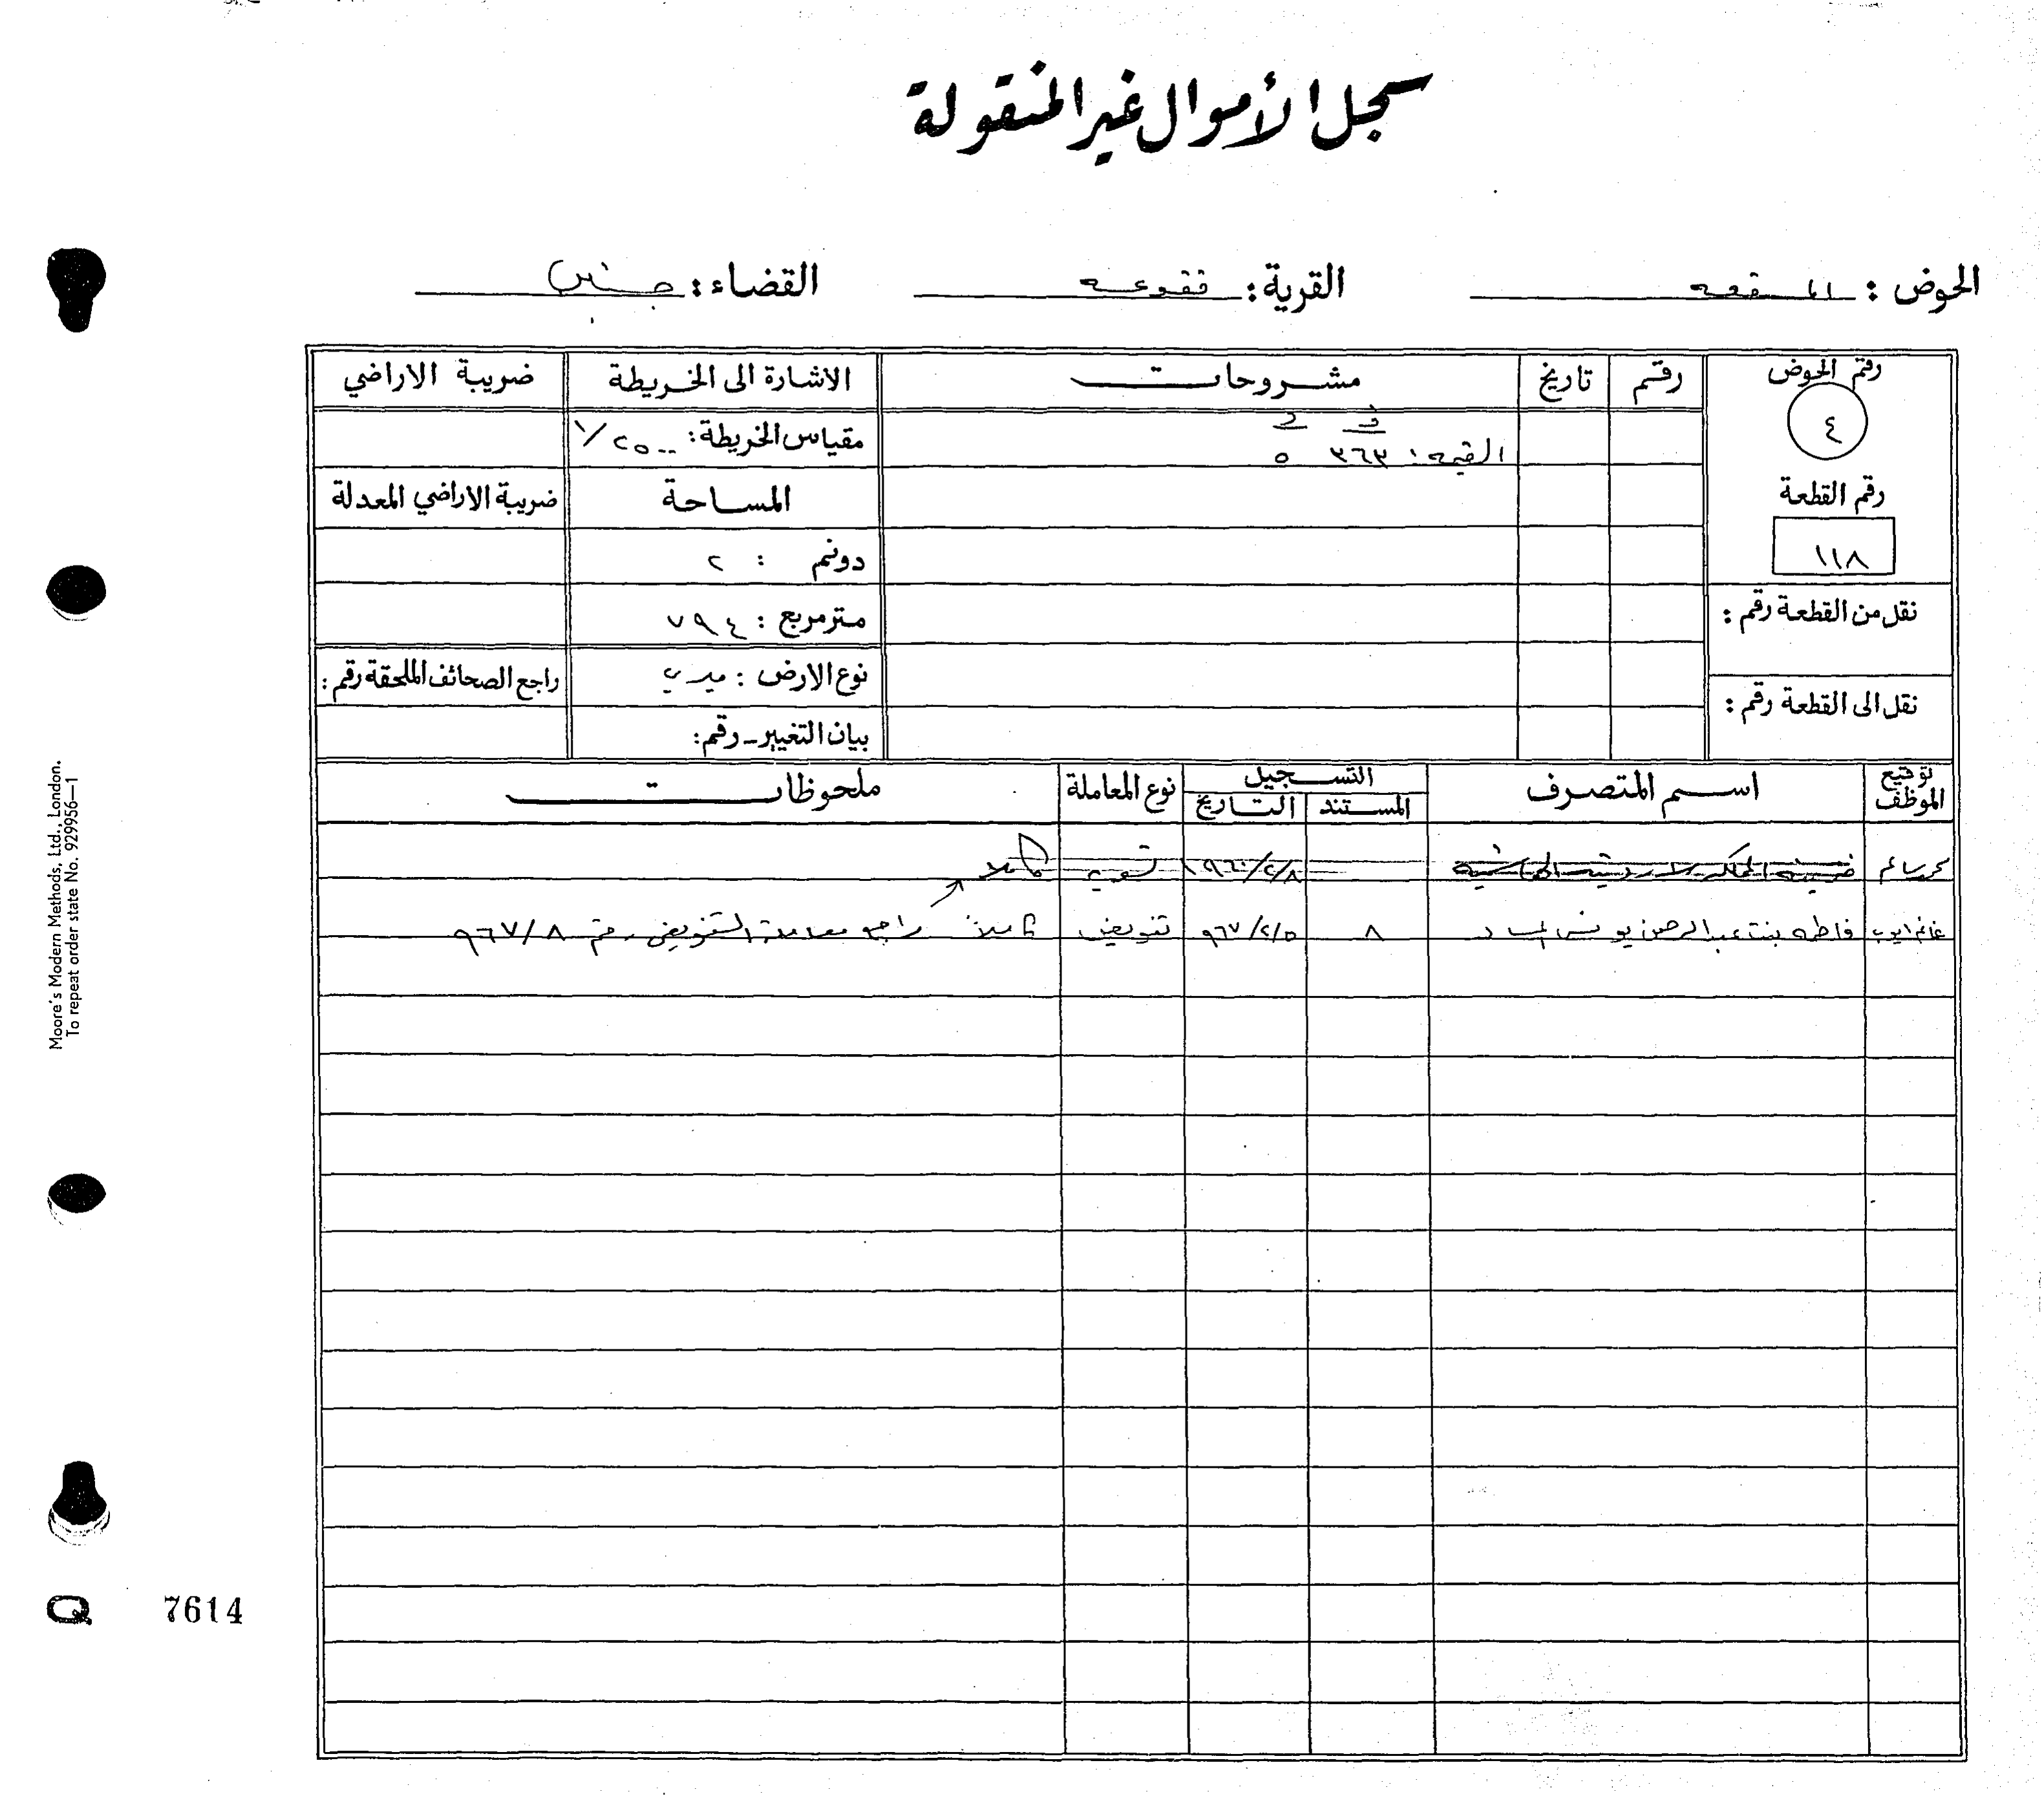 سجل الأموال غير المنقولة
الحوض : القرية : فقوعه القضاء : جنين
رقم الحوض رقم تاريخ مشروحات الاشارة الى الخريطة ضريبة الاراضي
٤
القيمه : ٣٦٣ ٥ مقياس الخريطة : ١/٢٥٠٠
رقم القطعة المساحة ضريبة الاراضي المعدلة
١١٨ دونم : ٢
نقل من القطعة رقم : متر مربع : ٧٩٤
نوع الارض : ميري راجع الصحائف الملحقة رقم :
نقل الى القطعة رقم :
بيان التغيير - رقم :
توقيع الموظف اسم المتصرف التسجيل نوع المعاملة ملحوظات
المستند التاريخ
خزينة المملكة الاردنية الهاشمية تسويه كاملا
فاطمه بنت عبد الرحمن يونس ٨ ٩٦٧/٢/٥ تفويض كاملا راجع معاملة التفويض رقم ٩٦٧/٨
Moore's Modern Methods, Ltd., London.
To repeat order state No. 929956—1
Q 7614